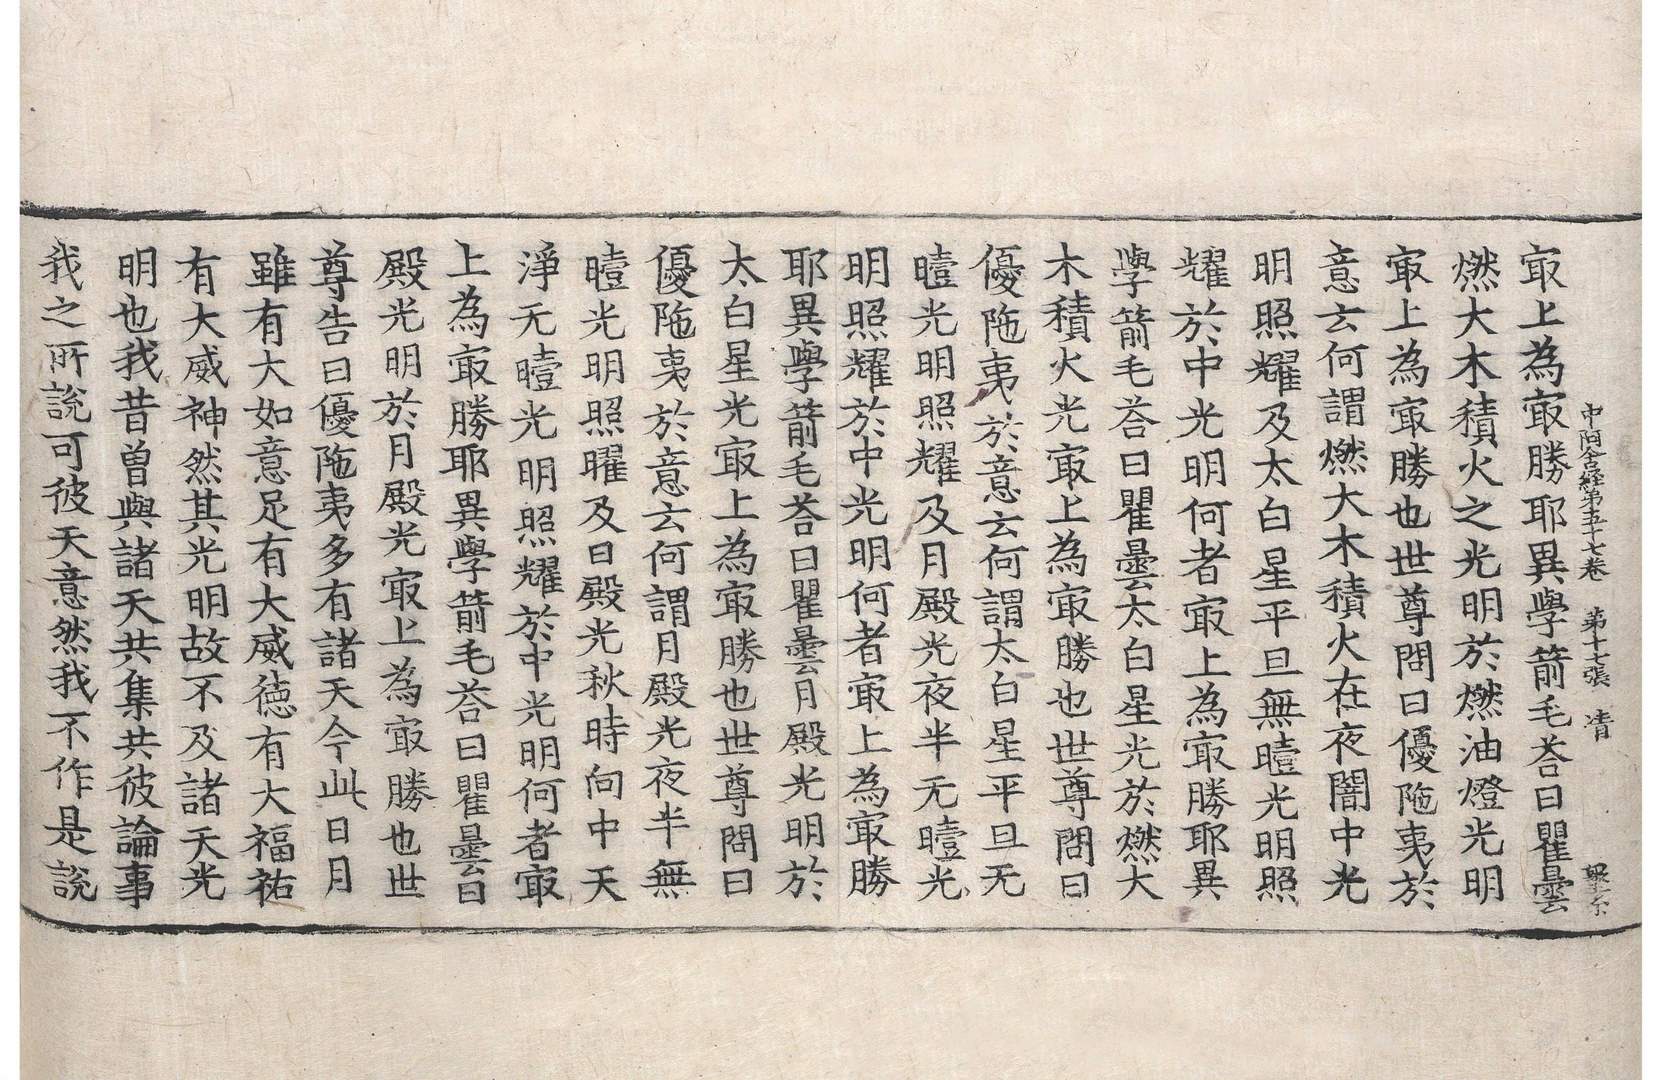 中阿含経第五十七卷　第十七張　清
㝡上為㝡勝耶異學箭毛荅曰瞿曇
燃大木積火之光明於燃油燈光明
㝡上為㝡勝也世尊問曰優陁夷於
意云何謂燃大木積火在夜闇中光
明照耀及太白星平旦無曀光明照
耀於中光明何者㝡上為㝡勝耶異
學箭毛荅曰瞿曇太白星光於燃大
木積火光㝡上為㝡勝也世尊問曰
優陁夷於意云何謂太白星平旦无
曀光明照耀及月殿光夜半无曀光
明照耀於中光明何者㝡上為㝡勝
耶異學箭毛荅曰瞿曇月殿光明於
太白星光㝡上為㝡勝也世尊問曰
優陁夷於意云何謂月殿光夜半無
曀光明照曜及日殿光秋時向中天
淨无曀光明照耀於中光明何者㝡
上為㝡勝耶異學箭毛荅曰瞿曇日
殿光明於月殿光㝡上為㝡勝也世
尊告曰優陁夷多有諸天今此日月
雖有大如意足有大威德有大福祐
有大威神然其光明故不及諸天光
明也我昔曽與諸天共集共彼論事
我之所說可彼天意然我不作是說